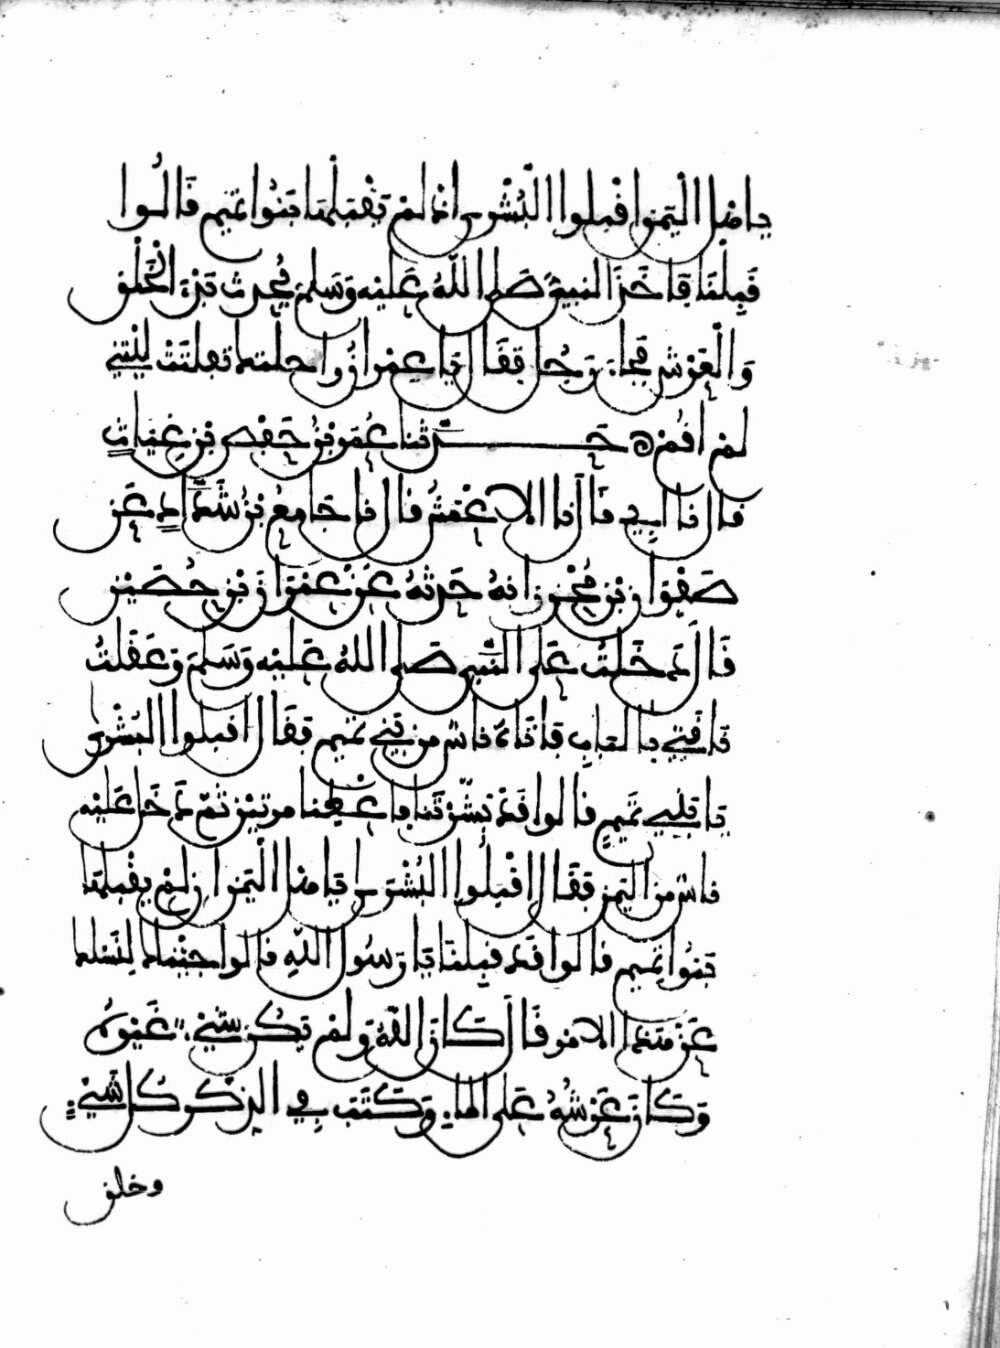 يا هل اليمن اقبلوا البشرى اذ لم يقبلها بنوا تميم قالوا
قبلنا فاخذ النبيء صلى الله عليه وسلم يحدث بدء الخلق
والعرش فجاء رجل فقال يا عمران راحلتك تفلتت ليتني
لم اقم حدثنا عمر بن حفص بن غياث
قال نا ابي قال نا الاعمش قال نا جامع بن شداد عن
صفوان بن محرز انه حدثه عن عمران بن حصين
قال دخلت على النبي صلى الله عليه وسلم وعقلت
ناقتي بالباب فاتاه ناس من بني تميم فقال اقبلوا البشرى
يا بني تميم قالوا قد بشرتنا فاعطنا مرتين ثم دخل عليه
ناس من اليمن فقال اقبلوا البشرى يا هل اليمن ان لم يقبلها
بنوا تميم قالوا قد قبلنا يا رسول الله قالوا جئناك لنسلك
عن هذا الامر قال كان الله ولم يكن شيء غيره
وكان عرشه على الماء وكتب في الذكر كل شيء
وخلق